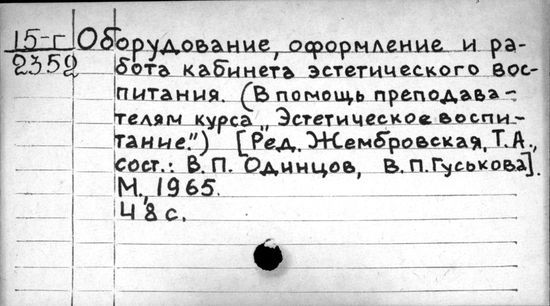 15-г Оборудование, оформление и ра-
2352 бота кабинета эстетического вос-
питания. (В помощь преподава-
телям курса „Эстетическое воспи-
тание".) [Ред. Жембровская, Т.А.,
сост.: В. П. Одинцов, В. П. Гуськова].
М., 1965.
48 с.